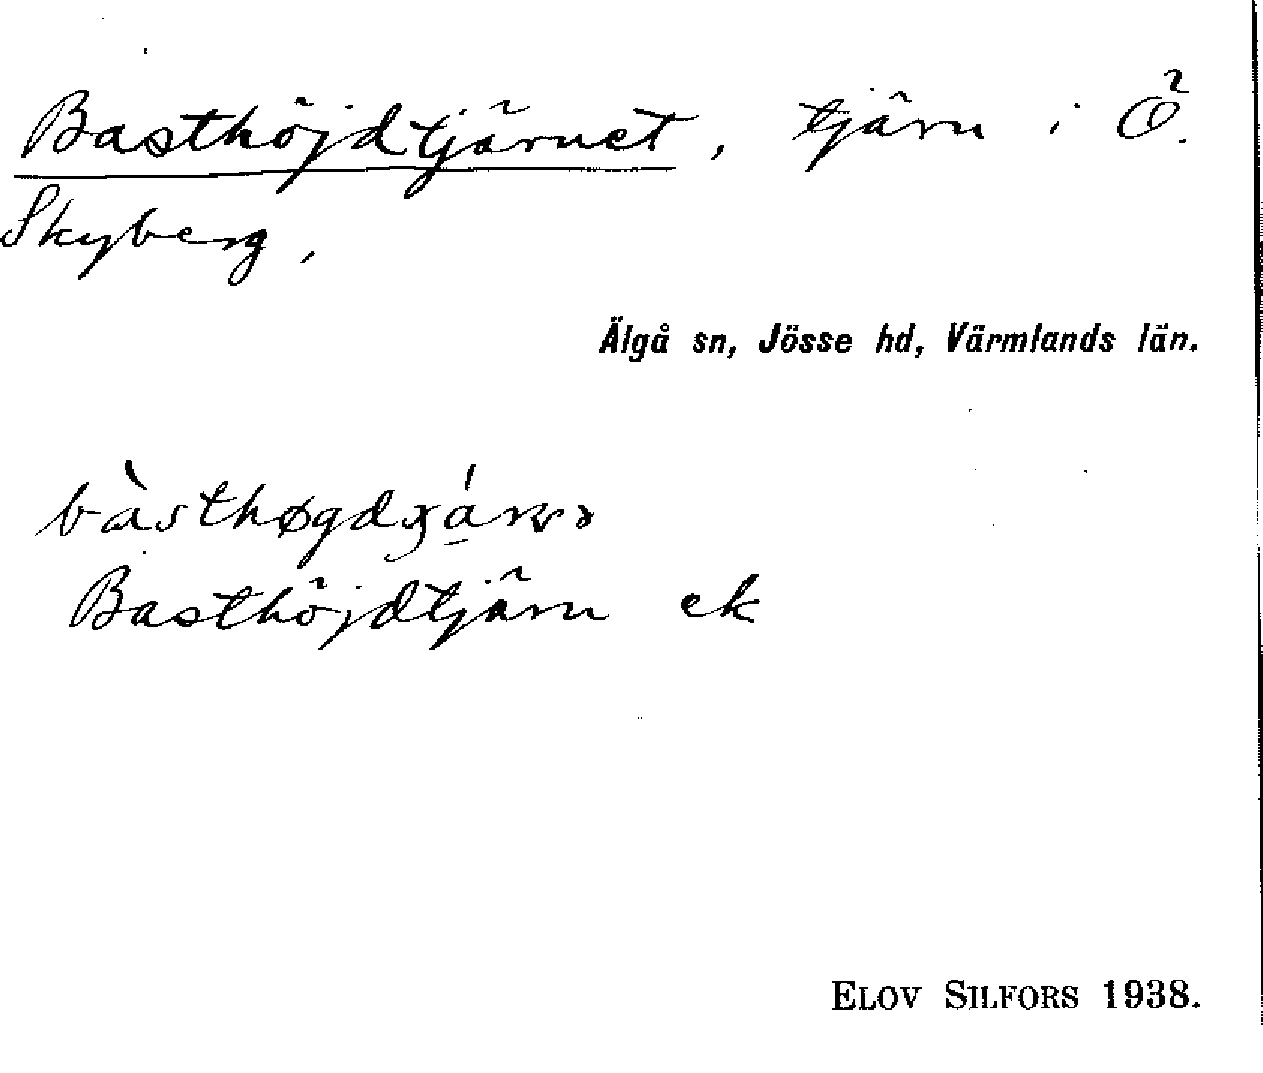 Basthöjdtjärnet, tjärn i Ö.
Skyberg.
Älgå sn, Jösse hd, Värmlands län.
Basthöjdtjärn ek
ELOV SILFORS 1938.